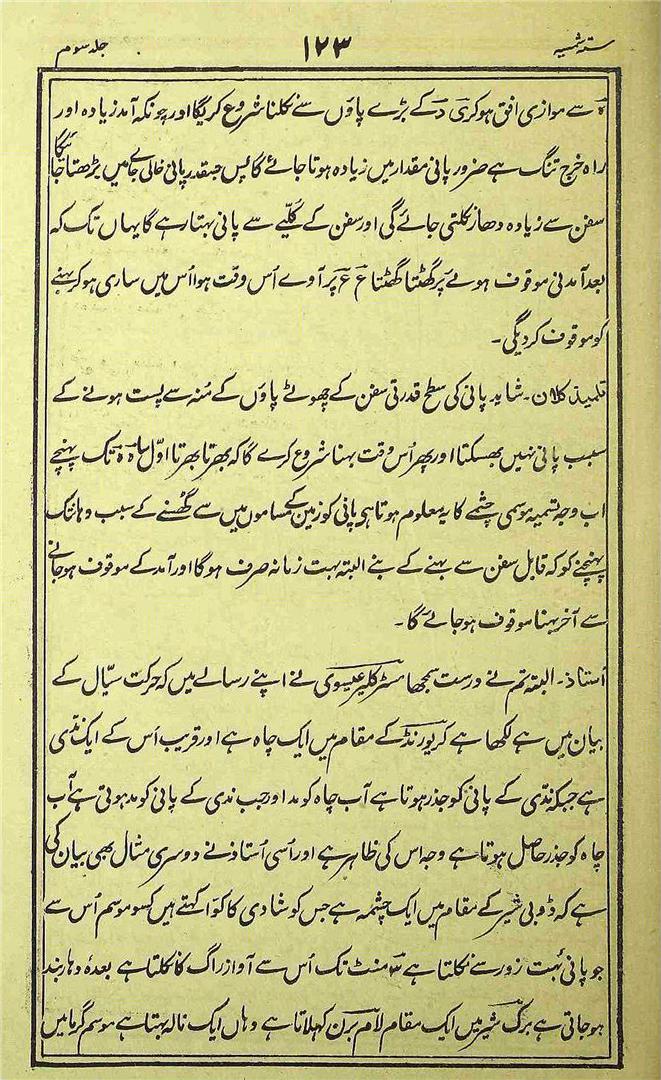 ستہ شمسیہ ١٢٣ جلد سوم
ہَ سے موازی افق ہوکر ی د کے بڑے پاوں سے نکلنا شروع کریگا اور چونکہ آمد زیادہ اور
راہ خرج تنگ ہے ضرور پانی مقدار میں زیادہ ہوتا جائے گا پس جسقدر پانی خالی جاے میں بڑھتا جائیگا
سفن سے زیادہ دھار نکلتی جائے گی اور سفن کے کلّیے سے پانی بہتا رہے گا یہاں تک کہ
بعد آمدنی موقوف ہونے پر گھٹتا گھٹتا ع ع پر آوے اُس وقت ہوا اُس میں ساری ہوکر بہنے
کو موقوف کردیگی۔
تلمیذ کلان۔ شاید پانی کی سطح قدرتی سفن کے چھوٹے پاوں کے مُنہ سے پست ہونے کے
سبب پانی نہیں بھسکتا اور پھر اُس وقت بہنا شروع کرے گا کہ بھرتا بھرتا اوّل ہ ہ تک پہنچے
اب وجہ تسمیہ موسمی چشمے کا یہ معلوم ہوتا ہی پانی کو زمین کے مساموں میں سے گھُسنے کے سبب وہانتک
پہنچنے کو کہ قابل سفن سے بہنے کے بنے البتہ بہت زمانہ صرف ہوگا اور آمد کے موقوف ہوجانے
سے آخر بہنا موقوف ہوجائے گا۔
اُستاذ۔ البتہ تم نے درست سمجھا سٹر کلیر عیسوی نے اپنے رسالے میں کہ حرکت سیّال کے
بیان میں ہے لکھا ہے کریورنڈ کے مقام میں ایک چاہ ہے اور قریب اُس کے ایک ندّی
ہے جبکہ ندّی کے پانی کو جذر ہوتا ہے آب چاہ کو مد اور جب ندی کے پانی کو مد ہوتی ہے آب
چاہ کو جذر حاصل ہوتا ہے وجہ اس کی ظاہر ہے اور اُسی اُستاذ نے دوسری مثال بھی بیان کی
ہے کہ ڈوبی شیر کے مقام میں ایک چشمہ ہے جس کو شادی کا کوٗا کہتے ہیں کسو موسم اُس سے
جو پانی بہت زور سے نکلتا ہے ٣ منٹ تک اُس سے آواز راگ کا نکلتا ہے بعدہٗ دہار بند
ہوجاتی ہے برگ شیر میں ایک مقام لام برن کہلاتا ہے وہاں ایک نالہ بہتا ہے موسم گرما میں